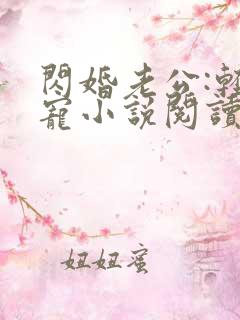 閃婚老公:漸
寵小說閱讀
妞妞蜜